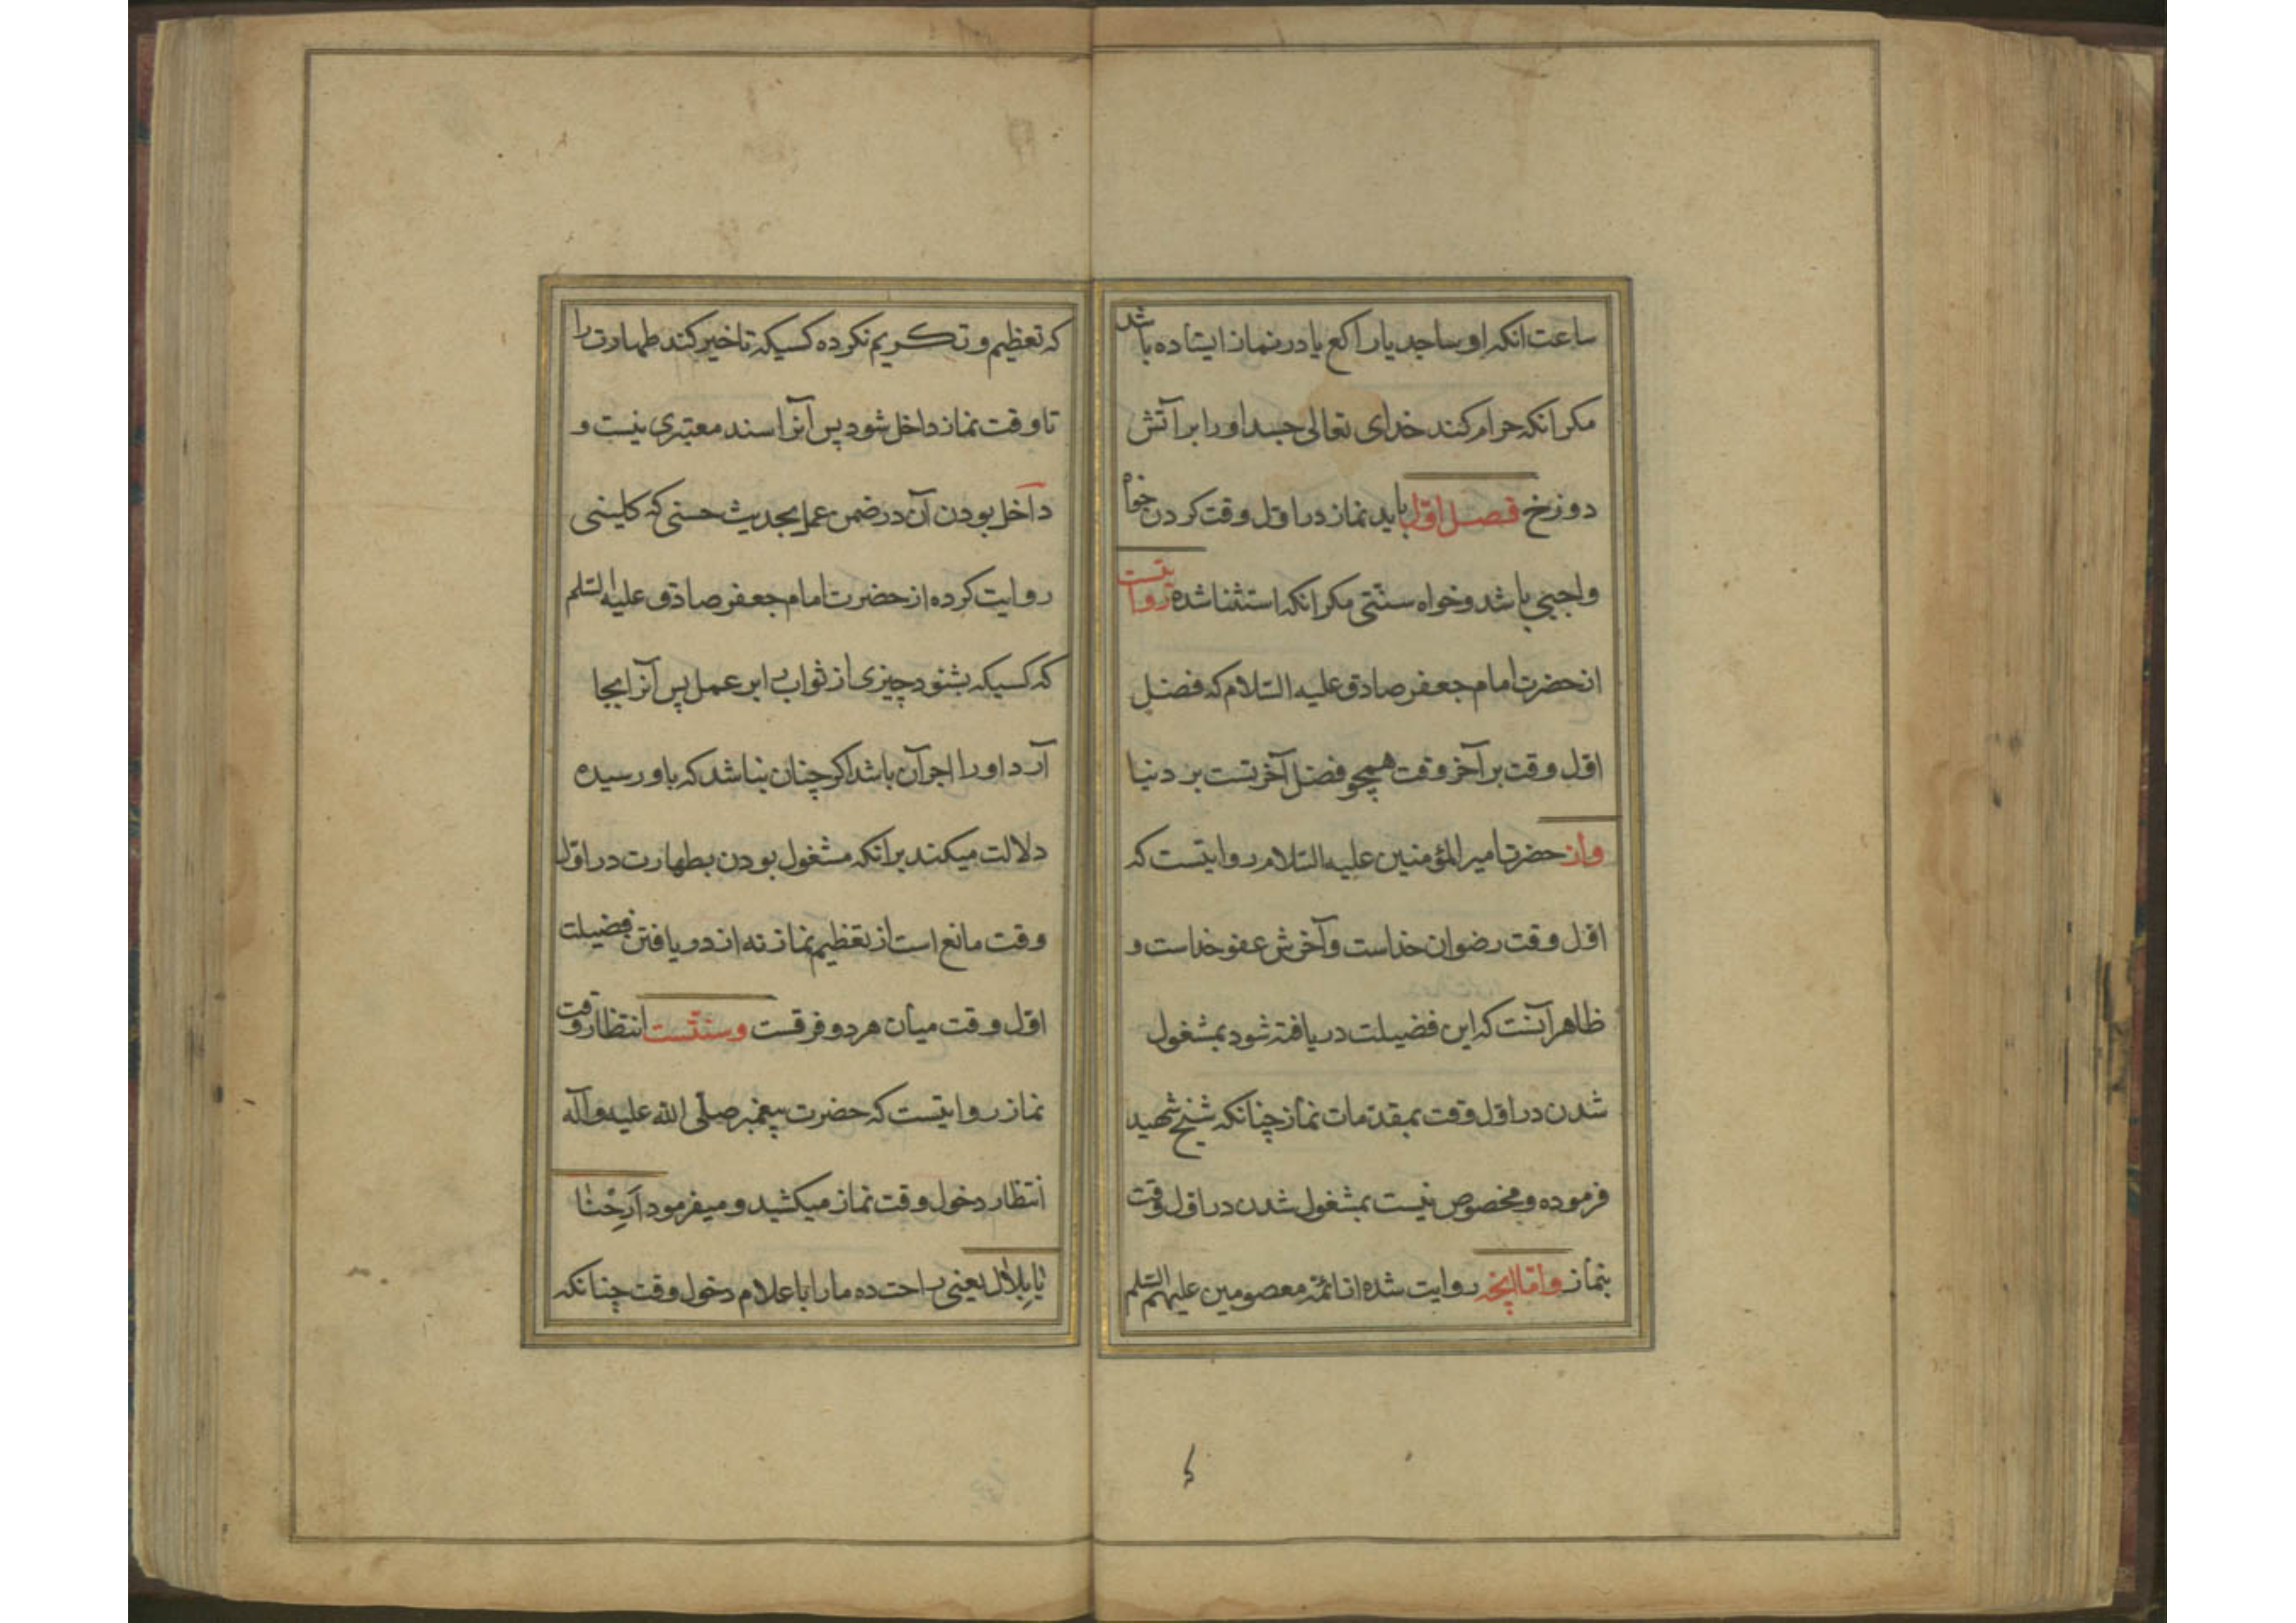 ساعت انکه او ساجد یا راکع یا در نماز ایستاده باشد
مکر انکه حرام کند خدای تعالی جسد او را بر آتش
دوزخ فصل اوّل باید نماز در اوّل وقت کردن خواه
واجبی باشد و خواه سنّتی مکر انکه استثنا شده روایتست
از حضرت امام جعفر صادق علیه السّلام که فضل
اوّل وقت بر آخر وقت همچو فضل آخرتست بر دنیا
و از حضرت امیر المؤمنین علیه السّلام روایتست که
اوّل وقت رضوان خداست و آخرش عفو خداست و
ظاهر آنست که این فضیلت دریافته شود بمشغول
شدن در اوّل وقت بمقدّمات نماز چنانکه شیخ شهید
فرموده و مخصوص نیست بمشغول شدن در اوّل وقت
بنماز و امّا انچه روایت شده از ائمّهٔ معصومین علیهم السّلم
که تعظیم و تکریم نکرده کسیکه تاخیر کند طهارت را
تا وقت نماز داخل شود پس آنرا سند معتبری نیست و
داخل بودن آن در ضمن عمل بحدیث حسنی که کلینی
روایت کرده از حضرت امام جعفر صادق علیه السّلم
که کسیکه بشنود چیزی از ثواب بر این عمل پس آنرا بجا
آرد او را اجر آن باشد اکر چنان نباشد که باو رسیده
دلالت میکند بر انکه مشغول بودن بطهارت در اوّل
وقت مانع است از تعظیم نماز نه از دریافتن فضیلت
اوّل وقت میان هر دو فرقست و سنّتست انتظار وقت
نماز روایتست که حضرت پیغمبر صلّی الله علیه و آله
انتظار دخول وقت نماز میکشید و میفرمود اَرِحْنٰا
یٰا بِلٰالُ یعنی راحت ده ما را باعلام دخول وقت چنانکه